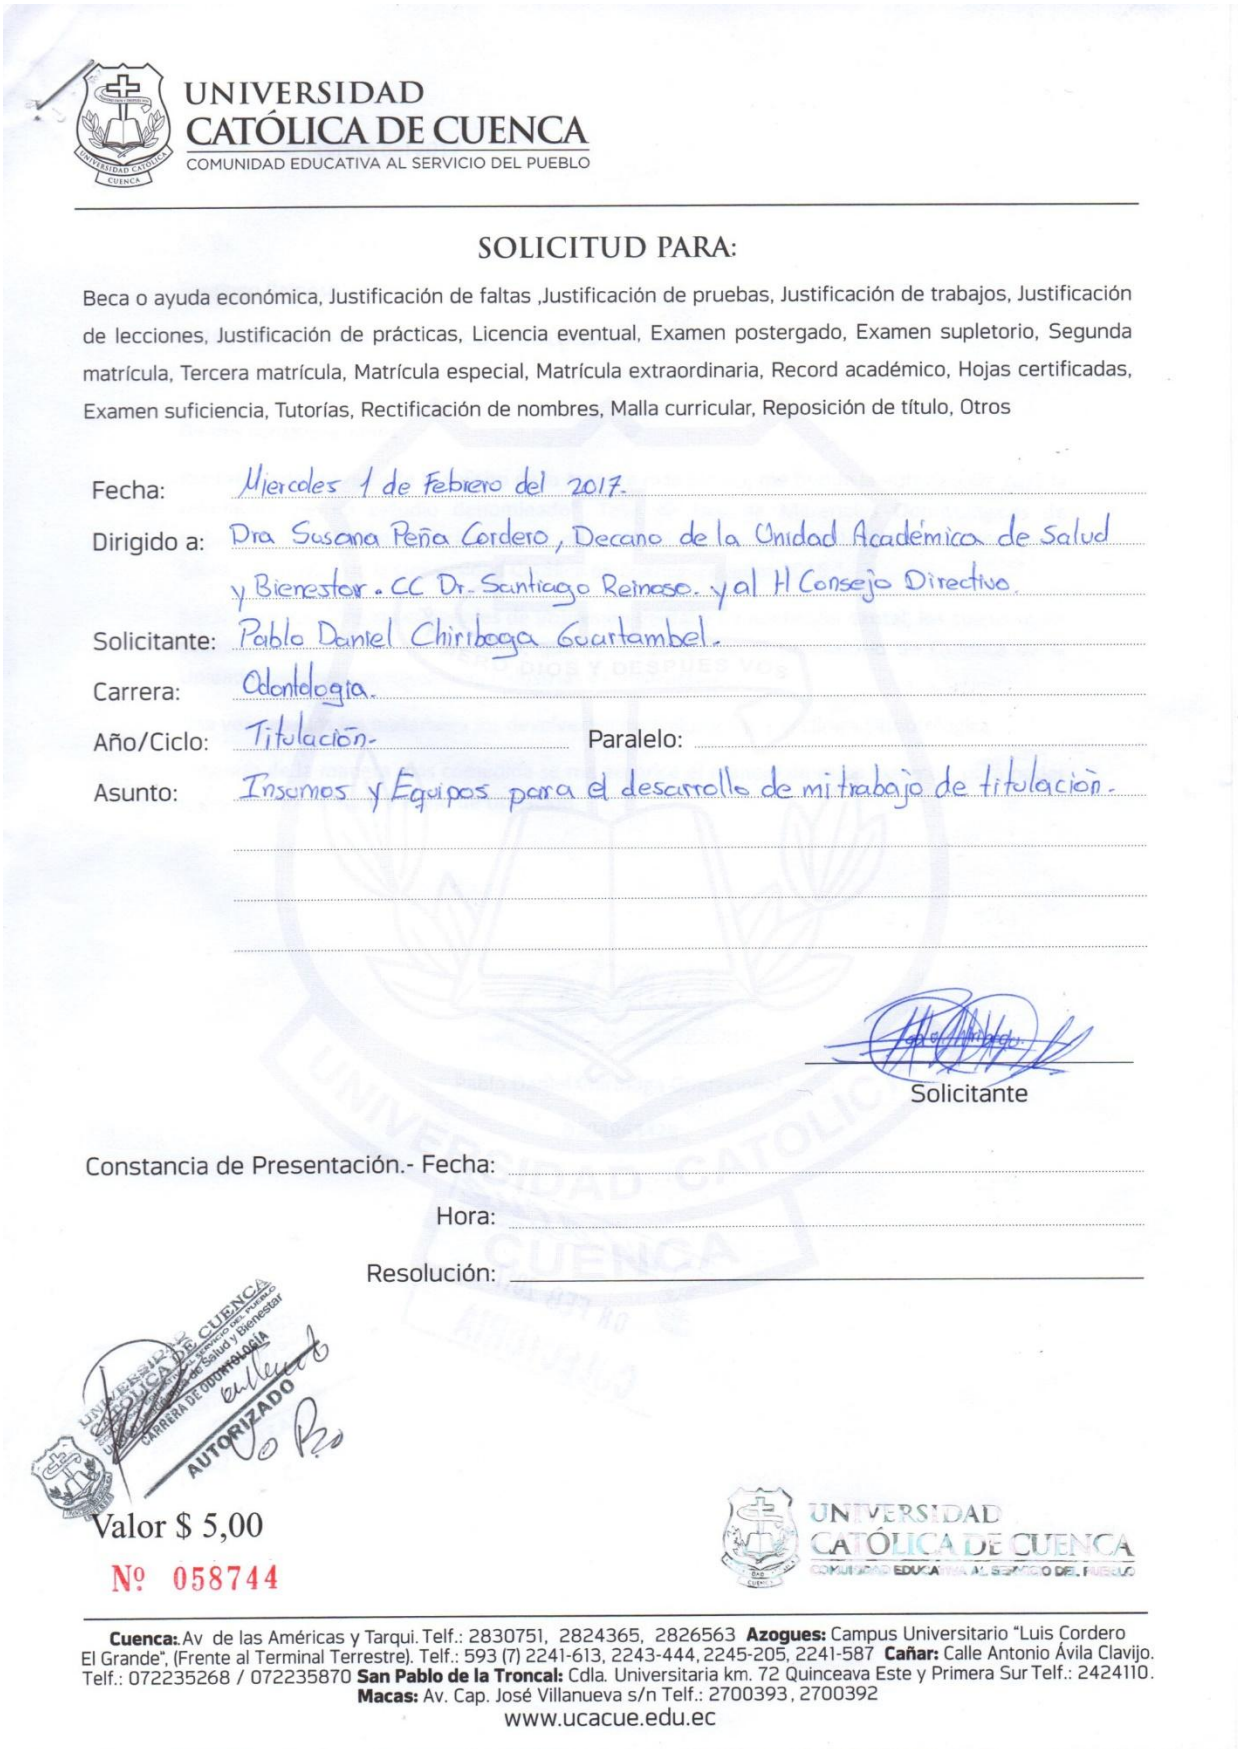 UNIVERSIDAD
CATÓLICA DE CUENCA
COMUNIDAD EDUCATIVA AL SERVICIO DEL PUEBLO
UNIVERSIDAD CATÓLICA
CUENCA
SOLICITUD PARA:
Beca o ayuda económica, Justificación de faltas ,Justificación de pruebas, Justificación de trabajos, Justificación
de lecciones, Justificación de prácticas, Licencia eventual, Examen postergado, Examen supletorio, Segunda
matrícula, Tercera matrícula, Matrícula especial, Matrícula extraordinaria, Record académico, Hojas certificadas,
Examen suficiencia, Tutorías, Rectificación de nombres, Malla curricular, Reposición de título, Otros
Fecha: Miercoles 1 de Febrero del 2017.
Dirigido a: Dra Susana Peña Cordero, Decano de la Unidad Académica de Salud
y Bienestar. CC Dr. Santiago Reinoso. y al H Consejo Directivo.
Solicitante: Pablo Daniel Chiriboga Guartambel.
Carrera: Odontologia.
Año/Ciclo: Titulación.- Paralelo:
Asunto: Insumos y Equipos para el desarrollo de mi trabajo de titulación.
Solicitante
Constancia de Presentación.- Fecha:
Hora:
Resolución:
UNIVERSIDAD
CATÓLICA DE CUENCA
COMUNIDAD EDUCATIVA AL SERVICIO DEL PUEBLO
Unidad Académica de Salud y Bienestar
CARRERA DE ODONTOLOGÍA
AUTORIZADO
Valor $ 5,00
Nº 058744
UNIVERSIDAD
CATÓLICA DE CUENCA
COMUNIDAD EDUCATIVA AL SERVICIO DEL PUEBLO
Cuenca:.Av de las Américas y Tarqui. Telf.: 2830751, 2824365, 2826563 Azogues: Campus Universitario "Luis Cordero
El Grande", (Frente al Terminal Terrestre). Telf.: 593 (7) 2241-613, 2243-444, 2245-205, 2241-587 Cañar: Calle Antonio Ávila Clavijo.
Telf.: 072235268 / 072235870 San Pablo de la Troncal: Cdla. Universitaria km. 72 Quinceava Este y Primera Sur Telf.: 2424110.
Macas: Av. Cap. José Villanueva s/n Telf.: 2700393, 2700392
www.ucacue.edu.ec